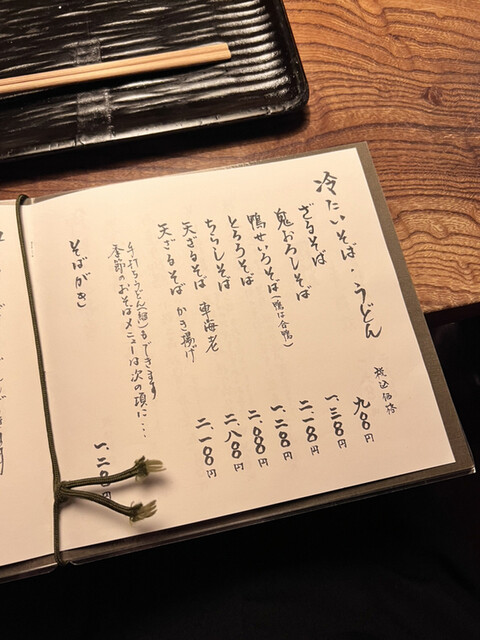 冷たいそば・うどん
税込価格
ざるそば 九〇〇円
鬼おろしそば 一、三〇〇円
鴨せいろそば(鴨は合鴨) 二、一〇〇円
とろろそば 一、二〇〇円
ちらしそば 二、〇〇〇円
天ざるそば 車海老 二、八〇〇円
天ざるそば かき揚げ 二、一〇〇円
手打ちうどん(細)もできます
季節のおそばメニューは次の項に・・・
そばがき 一、二〇〇円